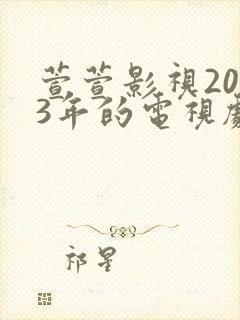 萱萱影視20
3年的電視劇
祁星